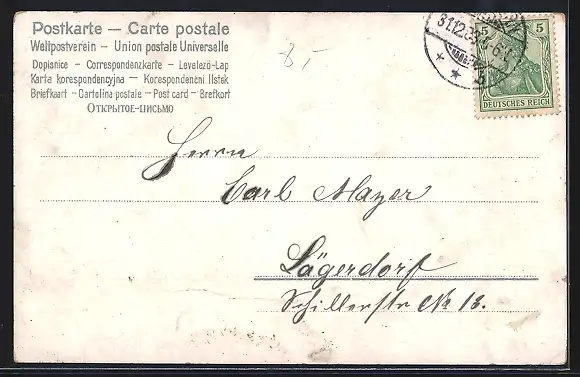 Postkarte — Carte postale
Weltpostverein – Union postale Universelle
Dopisnice – Correspondenzkarte – Levelező-Lap
Karta korespondencyjna – Korespondenční lístek
Briefkaart – Cartolina postale – Post card – Brefkort
Открытое-письмо
8,-
31.12.
5 5
DEUTSCHES REICH
Herrn
Carl Mayer
Lägerdorf
Schillerstr No 13.